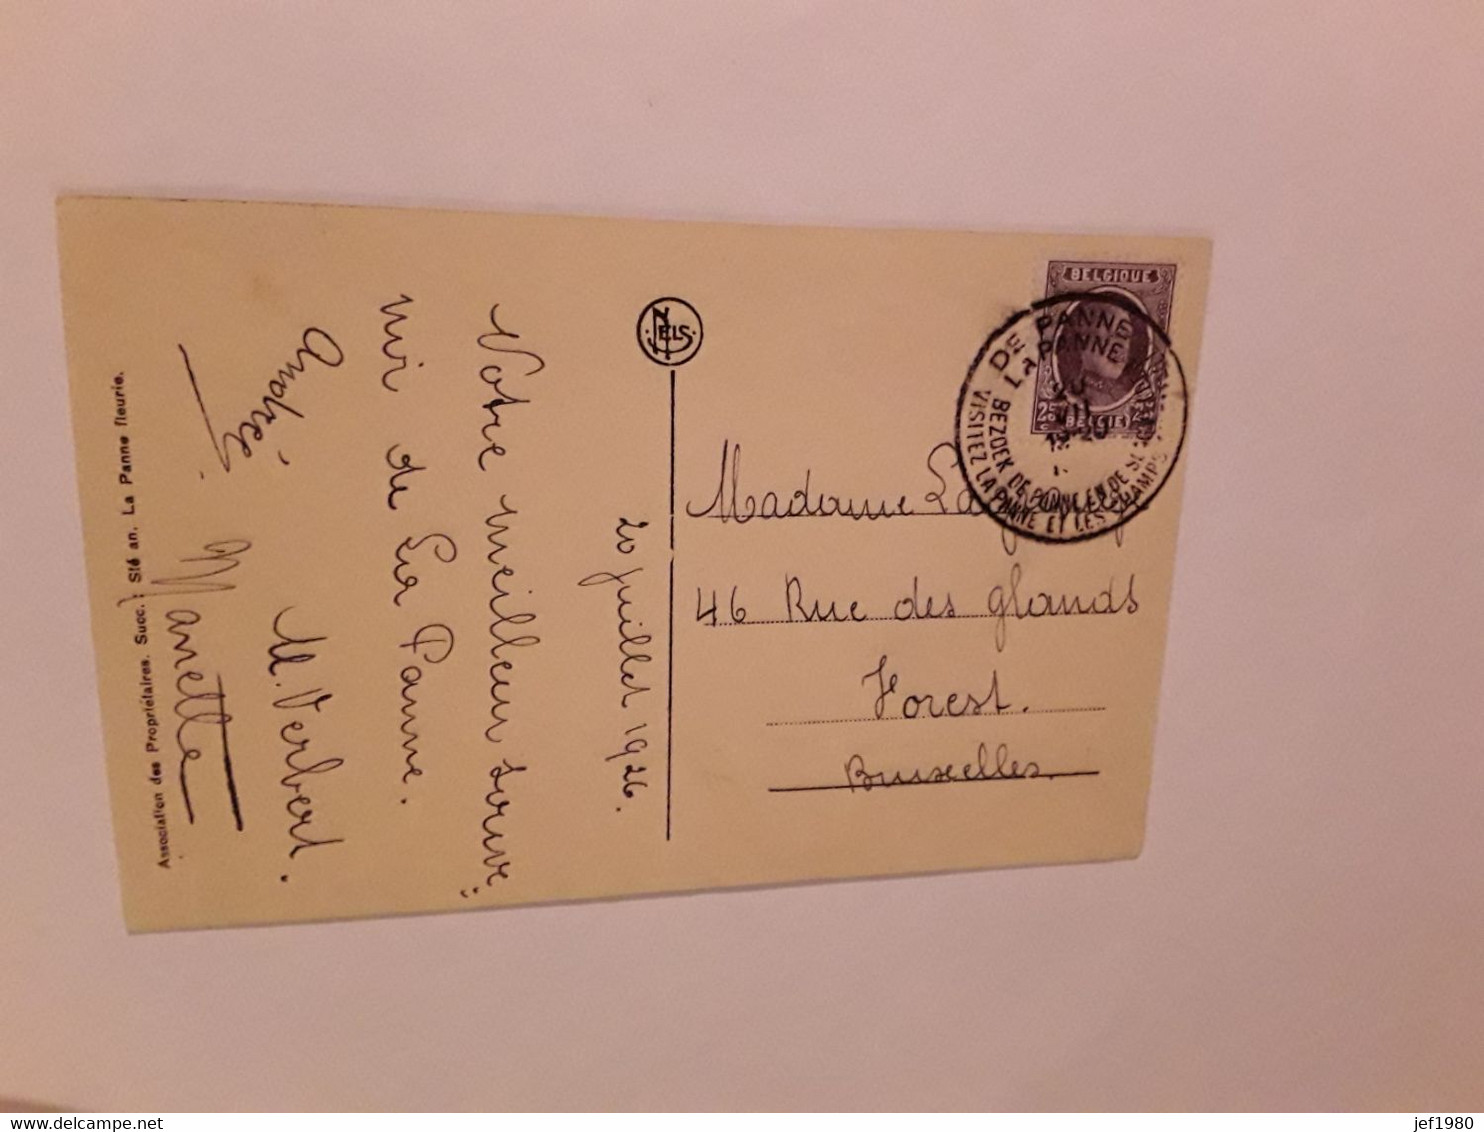 Association des Propriétaires. Succ. : Sté an. La Panne fleurie.
Votre meilleur souve
nir de La Panne.
André
M. Verbert.
Manette
20 juillet 1926.
NELS
BELGIQUE
25 BELGIE 25
DE PANNE
LA PANNE
BEZOEK DE PANNE EN DE
VISITEZ LA PANNE ET LES CHAMPS
Madame
46 Rue des glands
Forest.
Bruxelles.
jef1980